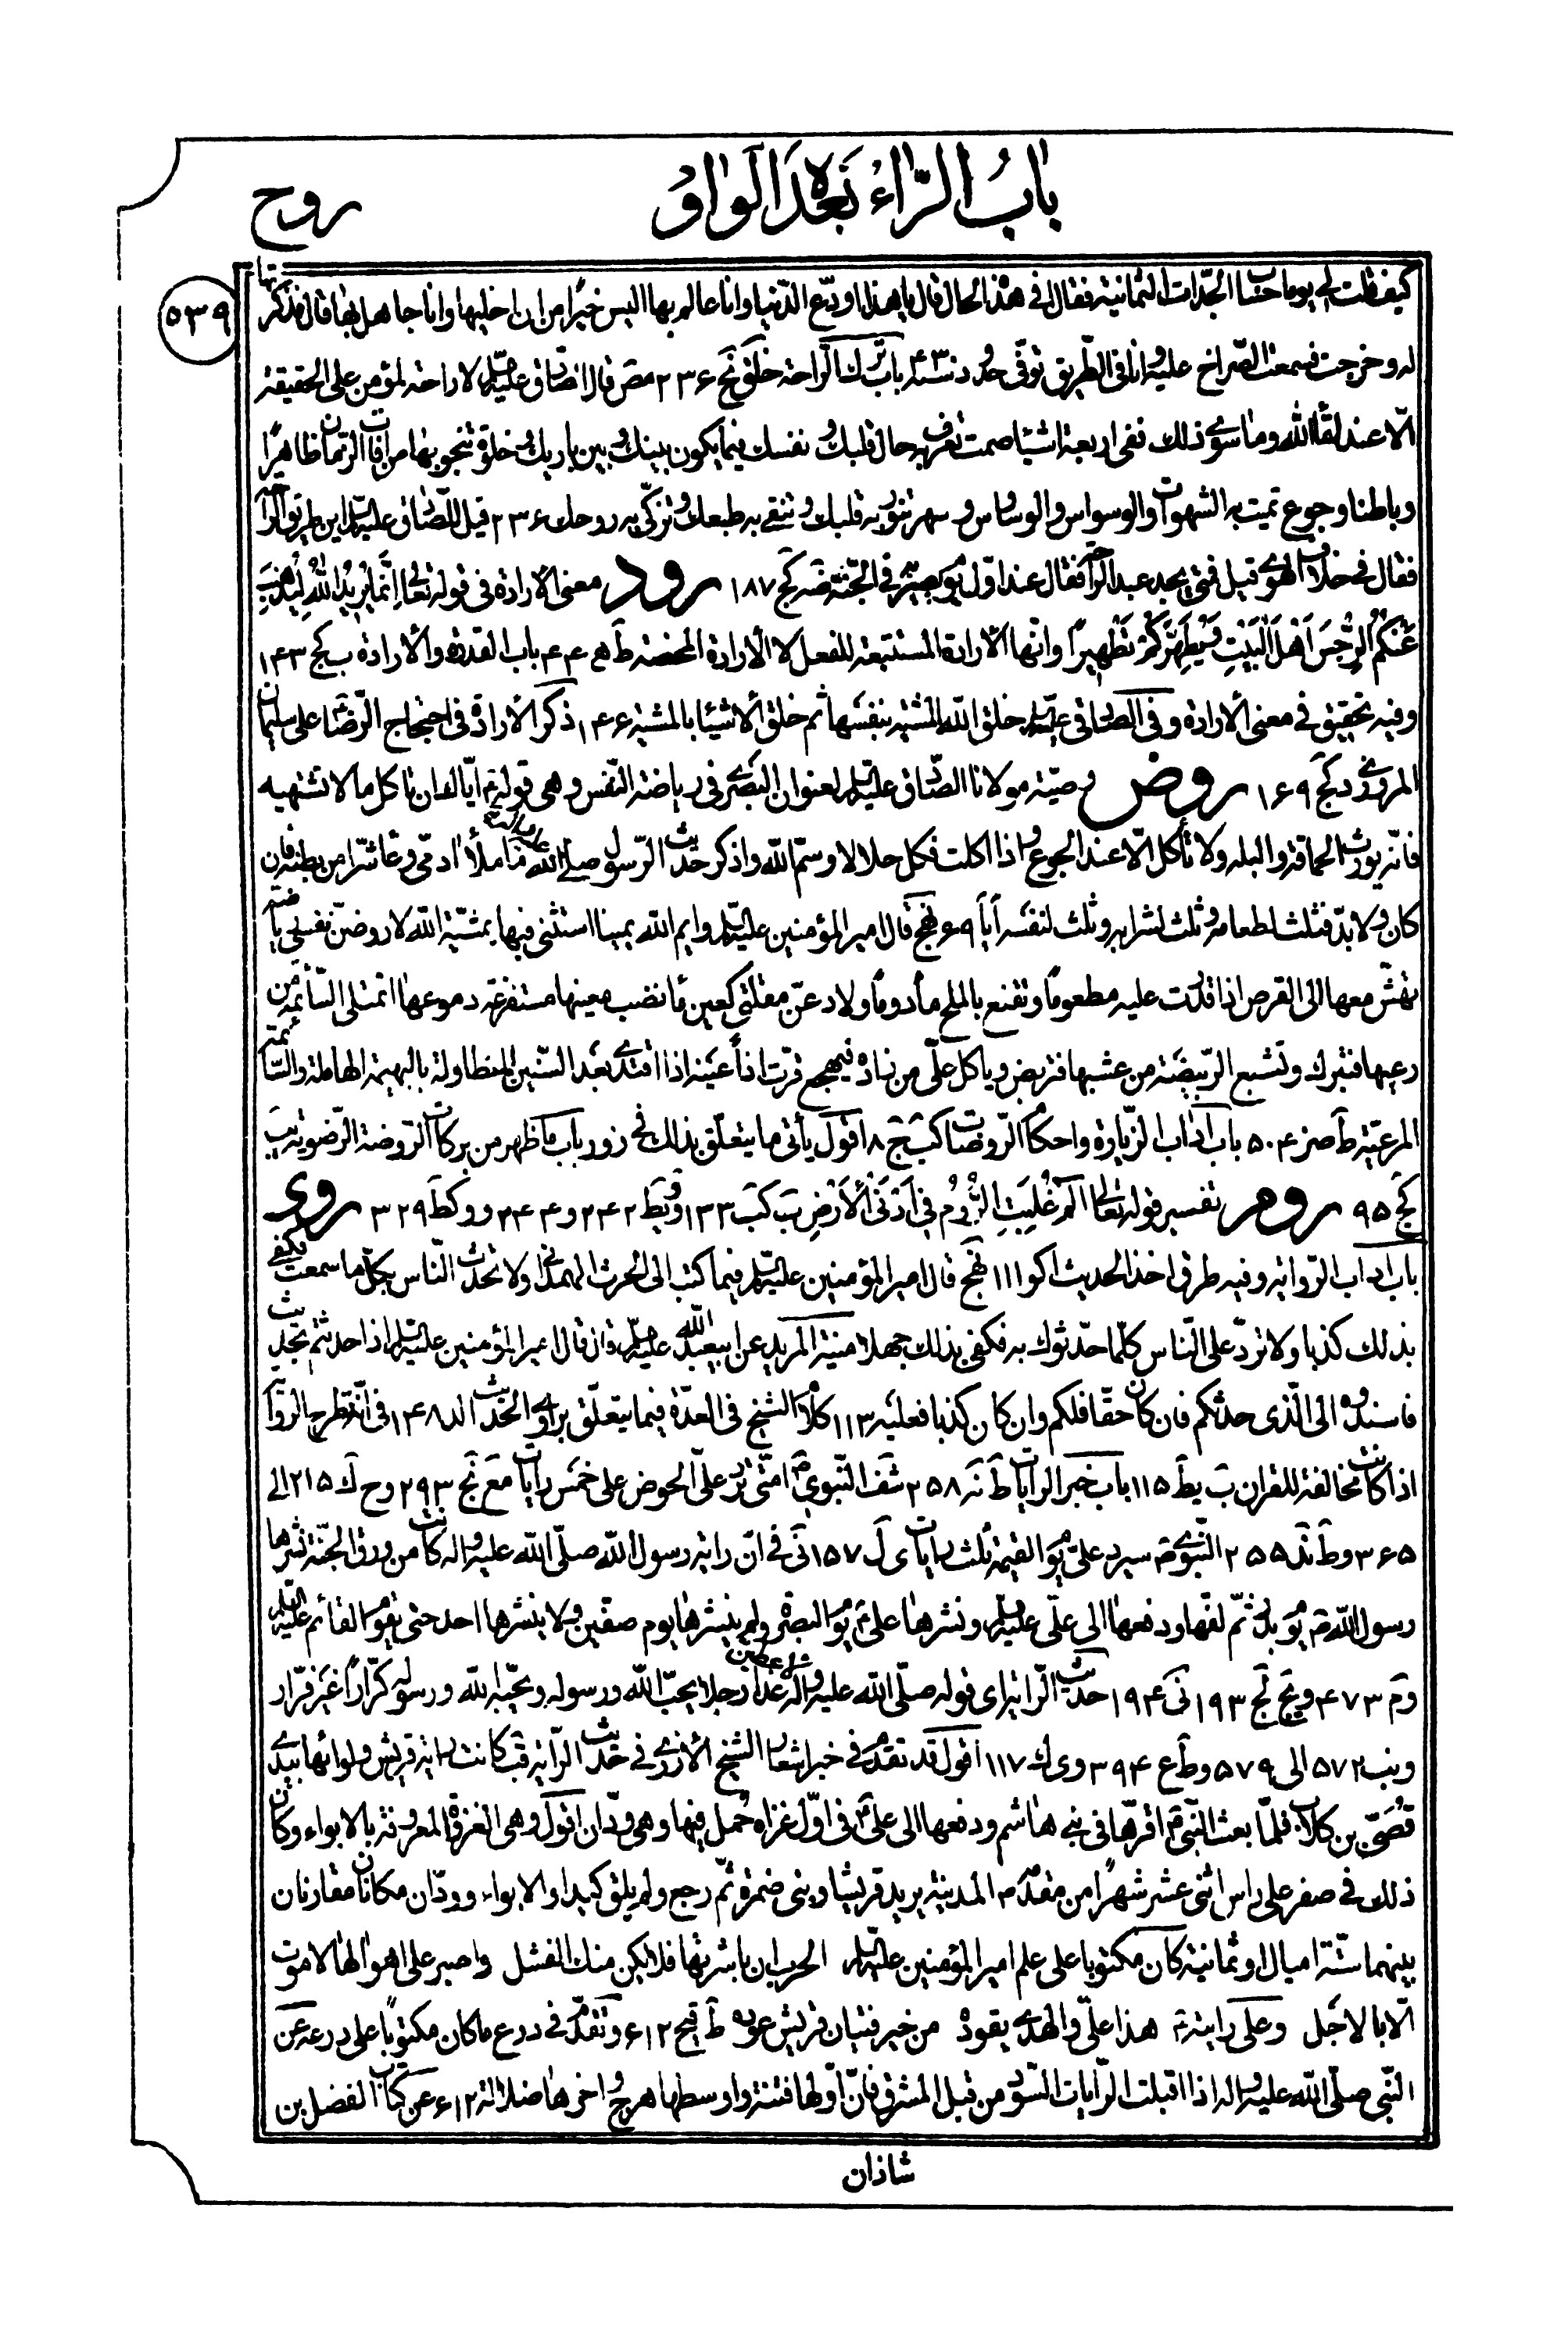 باب الراء بعده الواو
روح
٥٣٩
كيف قلت لي يوما حساب الجدات الثمانية فقال في هذا الحال قال يا هذا اودّع الدّنيا وانا عالم بها اليس خيرا من ان اخليها وانا جاهل بها قال فذكرتها
له وخرجت فسمعت الصراخ عليه وانا في الطريق توفّي حدود سنة ۴۳۰ باب ترك الراحة خلق نج ٢٣۶ مص قال الصّادق عليه السلام لا راحة لمؤمن على الحقيقة
الّا عند لقاء الله وما سوى ذلك ففي اربعة اشياء صمت تعرف به حال قلبك و نفسك فيما يكون بينك و بين باريك و خلوة تنجو بها من افات الزمان ظاهرًا
وباطنا وجوع تميت به الشهوات والوسواس والوساوس و سهر تنوّر به قلبك و تنقي به طبعك و تزكّي به روحك ٢٣۶ قيل للصّادق عليه السلام اين طريق الراحة
فقال في خلاف الهوى قيل فمتى يجد عبد الراحة فقال عند اوّل يوم يصير في الجنّة ضه كج ١٨٧ رود معنى الأرادة في قوله تعالى اِنَّما يُريدُ اللهُ لِيُذْهِبَ
عَنْكُمُ الرِّجْسَ اَهْلَ الْبَيْتِ وَيُطَهِّرَكُمْ تَطْهيرًا وانّها الأرادة المستتبعة للفعل لا الأرادة المحضة ط هـ ۴۴ باب القدرة والأرادة ب كج ١۴٣
وفيه تحقيق في معنى الأرادة و في الصادقي عليه السلام خلق الله المشية بنفسها ثم خلق الأشياء بالمشية ١۴۶ ذكر الأرادة في احتجاج الرّضا على سليمان
المروزي د كج ١۶٩ روض وصيّة مولانا الصّادق عليه السلام لعنوان البصري في رياضة النّفس وهي قوله ايّاك ان تاكل ما لا تشتهيه
فانّه يورث الحماقة والبله ولا تأكل الّا عند الجوع و اذا اكلت فكل حلالا وسمّ الله واذكر حديث الرّسول صلى الله عليه وآله ما ملأ ادمّي وعاء شرّا من بطنه فان
كان ولا بدّ فثلث لطعامه و ثلث لشرابه و ثلث لنفسه ا ز ۶٩ نهج قال امير المؤمنين عليه السلام وايم الله يمينا استثنى فيها بمشيّة الله لاروضّن نفسي رياضة
تهشّ معها الى القرص اذا قدرت عليه مطعومًا وتقنع بالملح مأدومًا ولادعنّ مقلتي كعين ماء نضب معينها مستفرغة دموعها اتمتلى السّائمة من
رعيها فتبرك وتشبع الرّبيضة من عشبها فتربض و ياكل علىّ من زاده فيهجع قرّت اذاً عينه اذا اقتدى بعد السّنين المتطاولة بالبهيمة الهاملة والسّائمة
المرعيّة ط صز ۵۰۴ باب اداب الزيارة واحكام الروضات كب ج ٨ اقول يأتي ما يتعلّق بذلك في زور باب ما ظهر من بركات الروضة الرّضوية يب
كج ٩۵ روم تفسير قوله تعالى الم غُلِبَتِ الرُّومُ في اَدْنَى الْأَرْضِ ب كب ١٣٣ و و يط ٢۴٢ و ٢۴۴ و و كط ٣٢٩ روى
باب اداب الرّواية وفيه طرق اخذ الحديث ا كو ١١١ نهج قال امير المؤمنين عليه السلام فيما كتب الى الحرث الهمداني ولا تحدث النّاس بكلّ ما سمعت فكفى
بذلك كذبا ولا تردّ على النّاس كلّما حدّثوك به فكفى بذلك جهلا منية المريد عن ابيعبد الله عليه السلام قال قال امير المؤمنين عليه السلام اذا حدثتم بحديث
فاسندوه الى الّذي حدثكم فان كان حقّا فلكم وان كان كذبا فعليه ١١٣ كلام الشيخ في العدّة فيما يتعلّق براوي الحديث الد ١۴٨ في انّه تطرح الرواية
اذا كانت مخالفة للقران ب يط ١١۵ باب خبر الرايات ط نه ٢۵٨ شف النّبوي امّتي ترد علىّ الحوض على خمس رايات مع نج ٢٩٣ وح ك ٢١۵ الى
٣۶۵ وط ند ٢۵۵ النّبوي سيرد علىّ يوم القيمة ثلث رايات ى ل ١۵٧ ني في انّ راية رسول الله صلّى الله عليه واله كانت من ورق الجنّة نشرها
رسول الله يوم بدر ثمّ لفّها ودفعها الى علّي عليه السلام ونشرها علي يوم البصرة ولم ينشرها يوم صفّين ولا ينشرها احد حتى يقوم القائم عليه السلام
وم ۴٧٣ ويج لج ١٩٣ ني ١٩۴ حديث الرّاية اى قوله صلّى الله عليه واله لاعطين غدا رجلا يحبّ الله ورسوله ويحبّه الله ورسوله كرّارًا غير فرّار
ونب ۵٧٢ الى ۵٧٩ وط ع ٣٩۴ وى ك ١١٧ اقول قد تقدّم في خبر اشعار الشيخ الأزرى في حديث الراية قب كانت راية قريش ولوائها بيدى
قُصَيّ بن كلاب فلمّا بعث النّبي اقرّها في بني هاشم ودفعها الى علي في اوّل غزاة حمل فيها وهي ودّان اقول وهي الغزوة المعروفة بالابواء وكان
ذلك في صفر على راس اثنى عشر شهرًا من مقدمه المدينة يريد قريشا وبني ضمرة ثمّ رجع ولم يلق كيدا والابواء وودّان مكانان مقارنان
بينهما ستّة اميال او ثمانية كان مكتوبا على علم امير المؤمنين عليه السلام الحرب ان باشرتها فلا يكن منك الفشل واصبر على اهوالها لا موت
الّا بالاجل وعلى رايته هذا علىّ والهدى يقوده من خير فتيان قريش عوده ط قيح ۶١٢ وتقدّم في درع ما كان مكتوبًا على درعه عن
النّبي صلّى الله عليه واله اذا اقبلت الرّايات السّود من قبل المشرق فانّ اوّلها فتنة واوسطها هرج و اخرها ضلالة ۶١٢ عن كتاب الفضل بن
شاذان